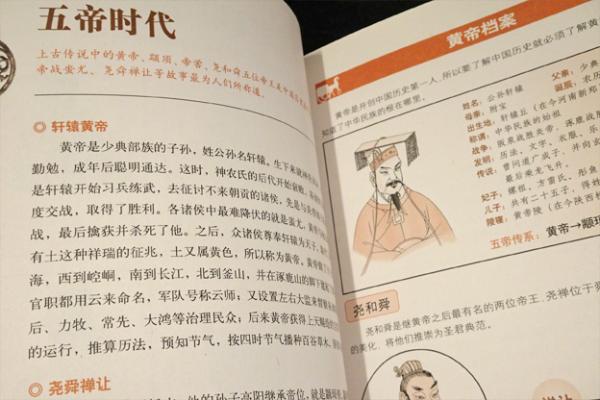 五帝时代
上古传说中的黄帝、颛顼、帝喾、尧和舜五位帝王是中国
帝战蚩尤、尧舜禅让等故事最为人们所称道。
轩辕黄帝
黄帝是少典部族的子孙，姓公孙名轩辕。生下来就
勤勉，成年后聪明通达。这时，神农氏的后代开始衰败，
是轩辕开始习兵练武，去征讨不来朝贡的诸侯，先是与
度交战，取得了胜利。各诸侯中最难降伏的就是蚩尤，
战，最后擒获并杀死了他。之后，众诸侯尊奉轩辕为天子，
有土这种祥瑞的征兆，土又属黄色，所以称为黄帝，黄帝
海，西到崆峒，南到长江，北到釜山，并在涿鹿山的
官职都用云来命名，军队号称云师；又设置左右大监来
后、力牧、常先、大鸿等治理民众；后来黄帝获得上天
的运行，推算历法，预知节气，按四时节气播种百谷草木，
尧舜禅让
他的孙子高阳继承帝位，就是颛顼
黄帝档案
黄帝是开创中国历史第一人，所以要了解中国历史就必须了解黄
知道了中华民族的根在哪里。
姓名：公孙轩辕
父亲：少典
母亲：附宝
诞辰：农历
出生地：轩辕丘（在今河南新郑
称谓：中华民族的始祖
战争：阪泉战胜炎帝、涿鹿战
发明：历法、文字、衣服、乐
传说：曾问道广成子，并向玄
最后乘龙飞升。
妃子：嫘祖，方雷氏，彤鱼
儿子：共有二十五子，得姓
陵寝：黄帝陵（在今陕西
五帝传系：黄帝→颛顼
尧和舜
尧和舜是继黄帝之后最有名的两位帝王，尧禅位于舜
的美化，将他们推崇为圣君典范。